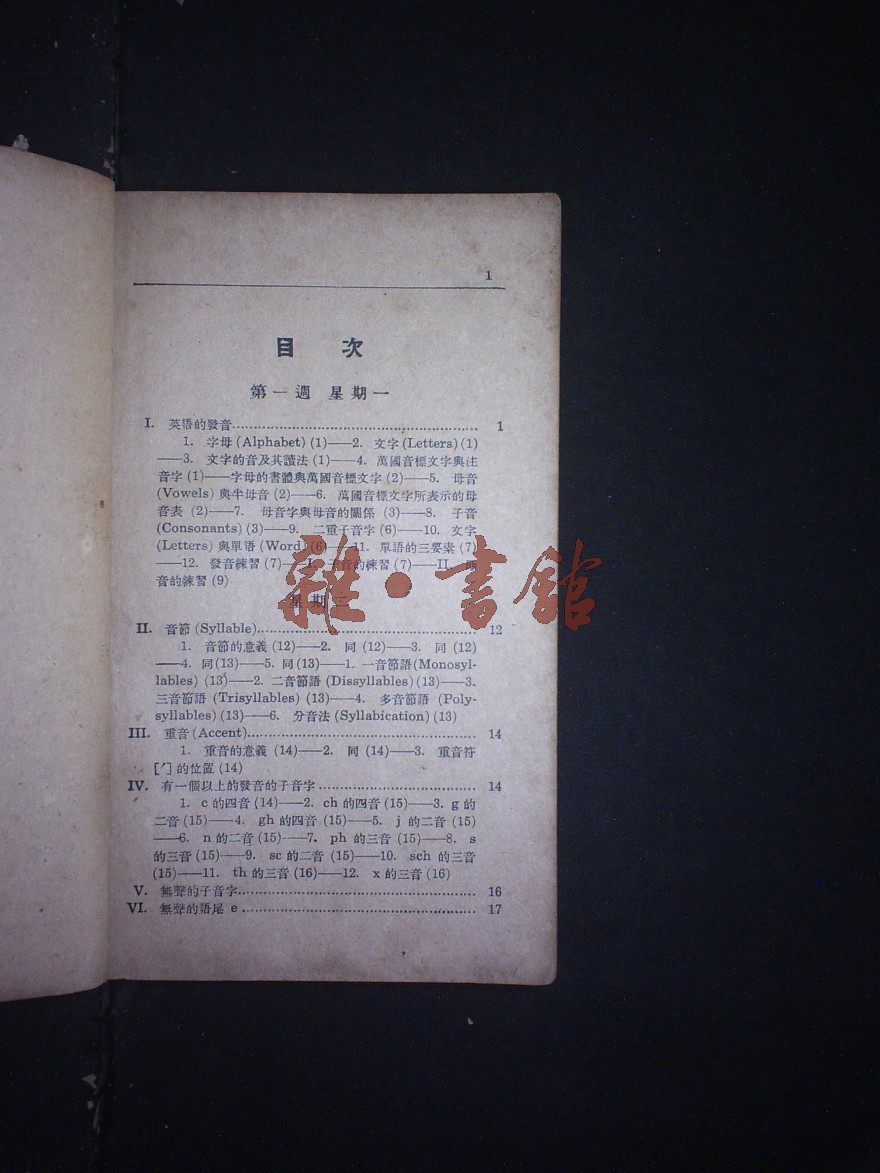 1
目 次
第一週 星期一
I. 英語的發音 1
1. 字母 (Alphabet) (1)——2. 文字 (Letters) (1)
——3. 文字的音及其讀法 (1)——4. 萬國音標文字與注
音字 (1)——字母的書體與萬國音標文字 (2)——5. 母音
(Vowels) 與半母音 (2)——6. 萬國音標文字所表示的母
音表 (2)——7. 母音字與母音的關係 (3)——8. 子音
(Consonants) (3)——9. 二重子音字 (6)——10. 文字
(Letters) 與單语 (Word) (6)——11. 單語的三要素 (7)
——12. 發音練習 (7)——I. 的練習 (7)——II.
音的練習 (9)
雜·書館
星期二
II. 音節 (Syllable) 12
1. 音節的意義 (12)——2. 同 (12)——3. 同 (12)
——4. 同 (13)——5. 同 (13)——1. 一音節語 (Monosyl-
lables) (13)——2. 二音節語 (Dissyllables) (13)——3.
三音節語 (Trisyllables) (13)——4. 多音節語 (Poly-
syllables) (13)——6. 分音法 (Syllabication) (13)
III. 重音 (Accent) 14
1. 重音的意義 (14)——2. 同 (14)——3. 重音符
[′] 的位置 (14)
IV. 有一個以上的發音的子音字 14
1. c 的四音 (14)——2. ch 的四音 (15)——3. g 的
二音 (15)——4. gh 的四音 (15)——5. j 的二音 (15)
——6. n 的二音 (15)——7. ph 的三音 (15)——8. s
的三音 (15)——9. sc 的二音 (15)——10. sch 的三音
(15)——11. th 的三音 (16)——12. x 的三音 (16)
V. 無聲的子音字 16
VI. 無聲的語尾 e 17